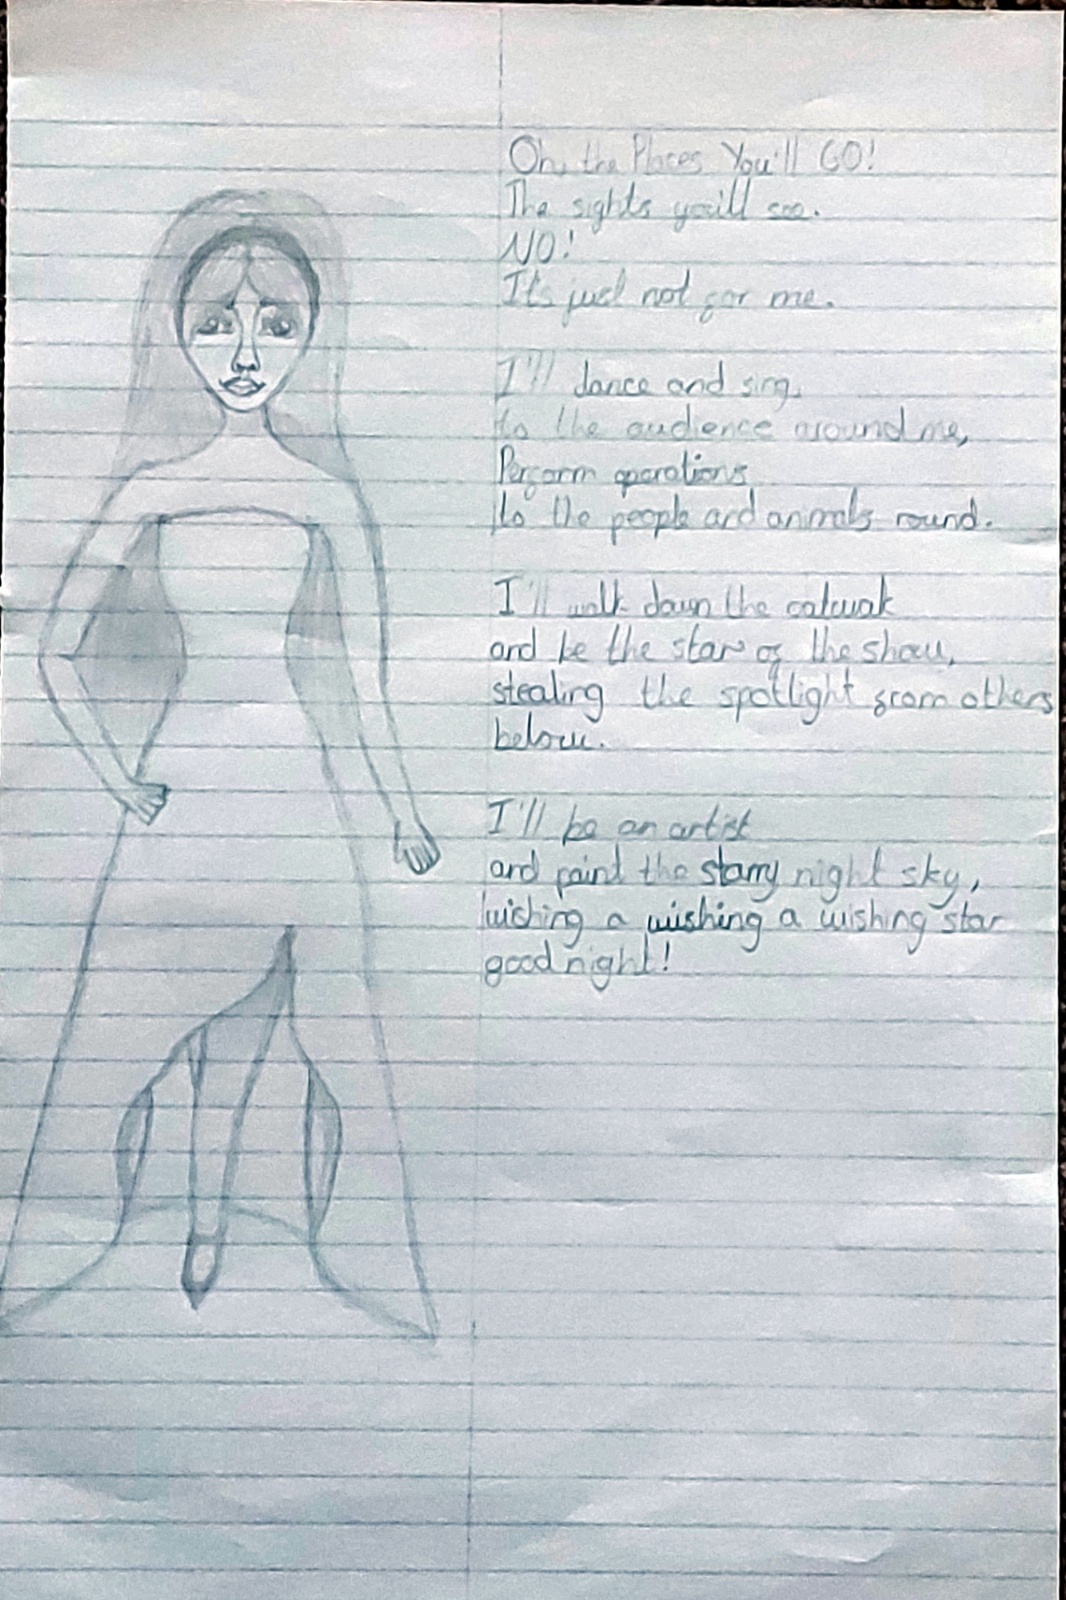 Oh, the Places You'll GO!
The sights you'll see.
NO!
It's just not for me.
I'll dance and sing,
to the audience around me,
Perform operations
to the people and animals round.
I'll walk down the catwak
and be the star of the show,
stealing the spotlight from others
below.
I'll be an artist
and paint the starry night sky,
wishing a wishing a wishing star
good night!